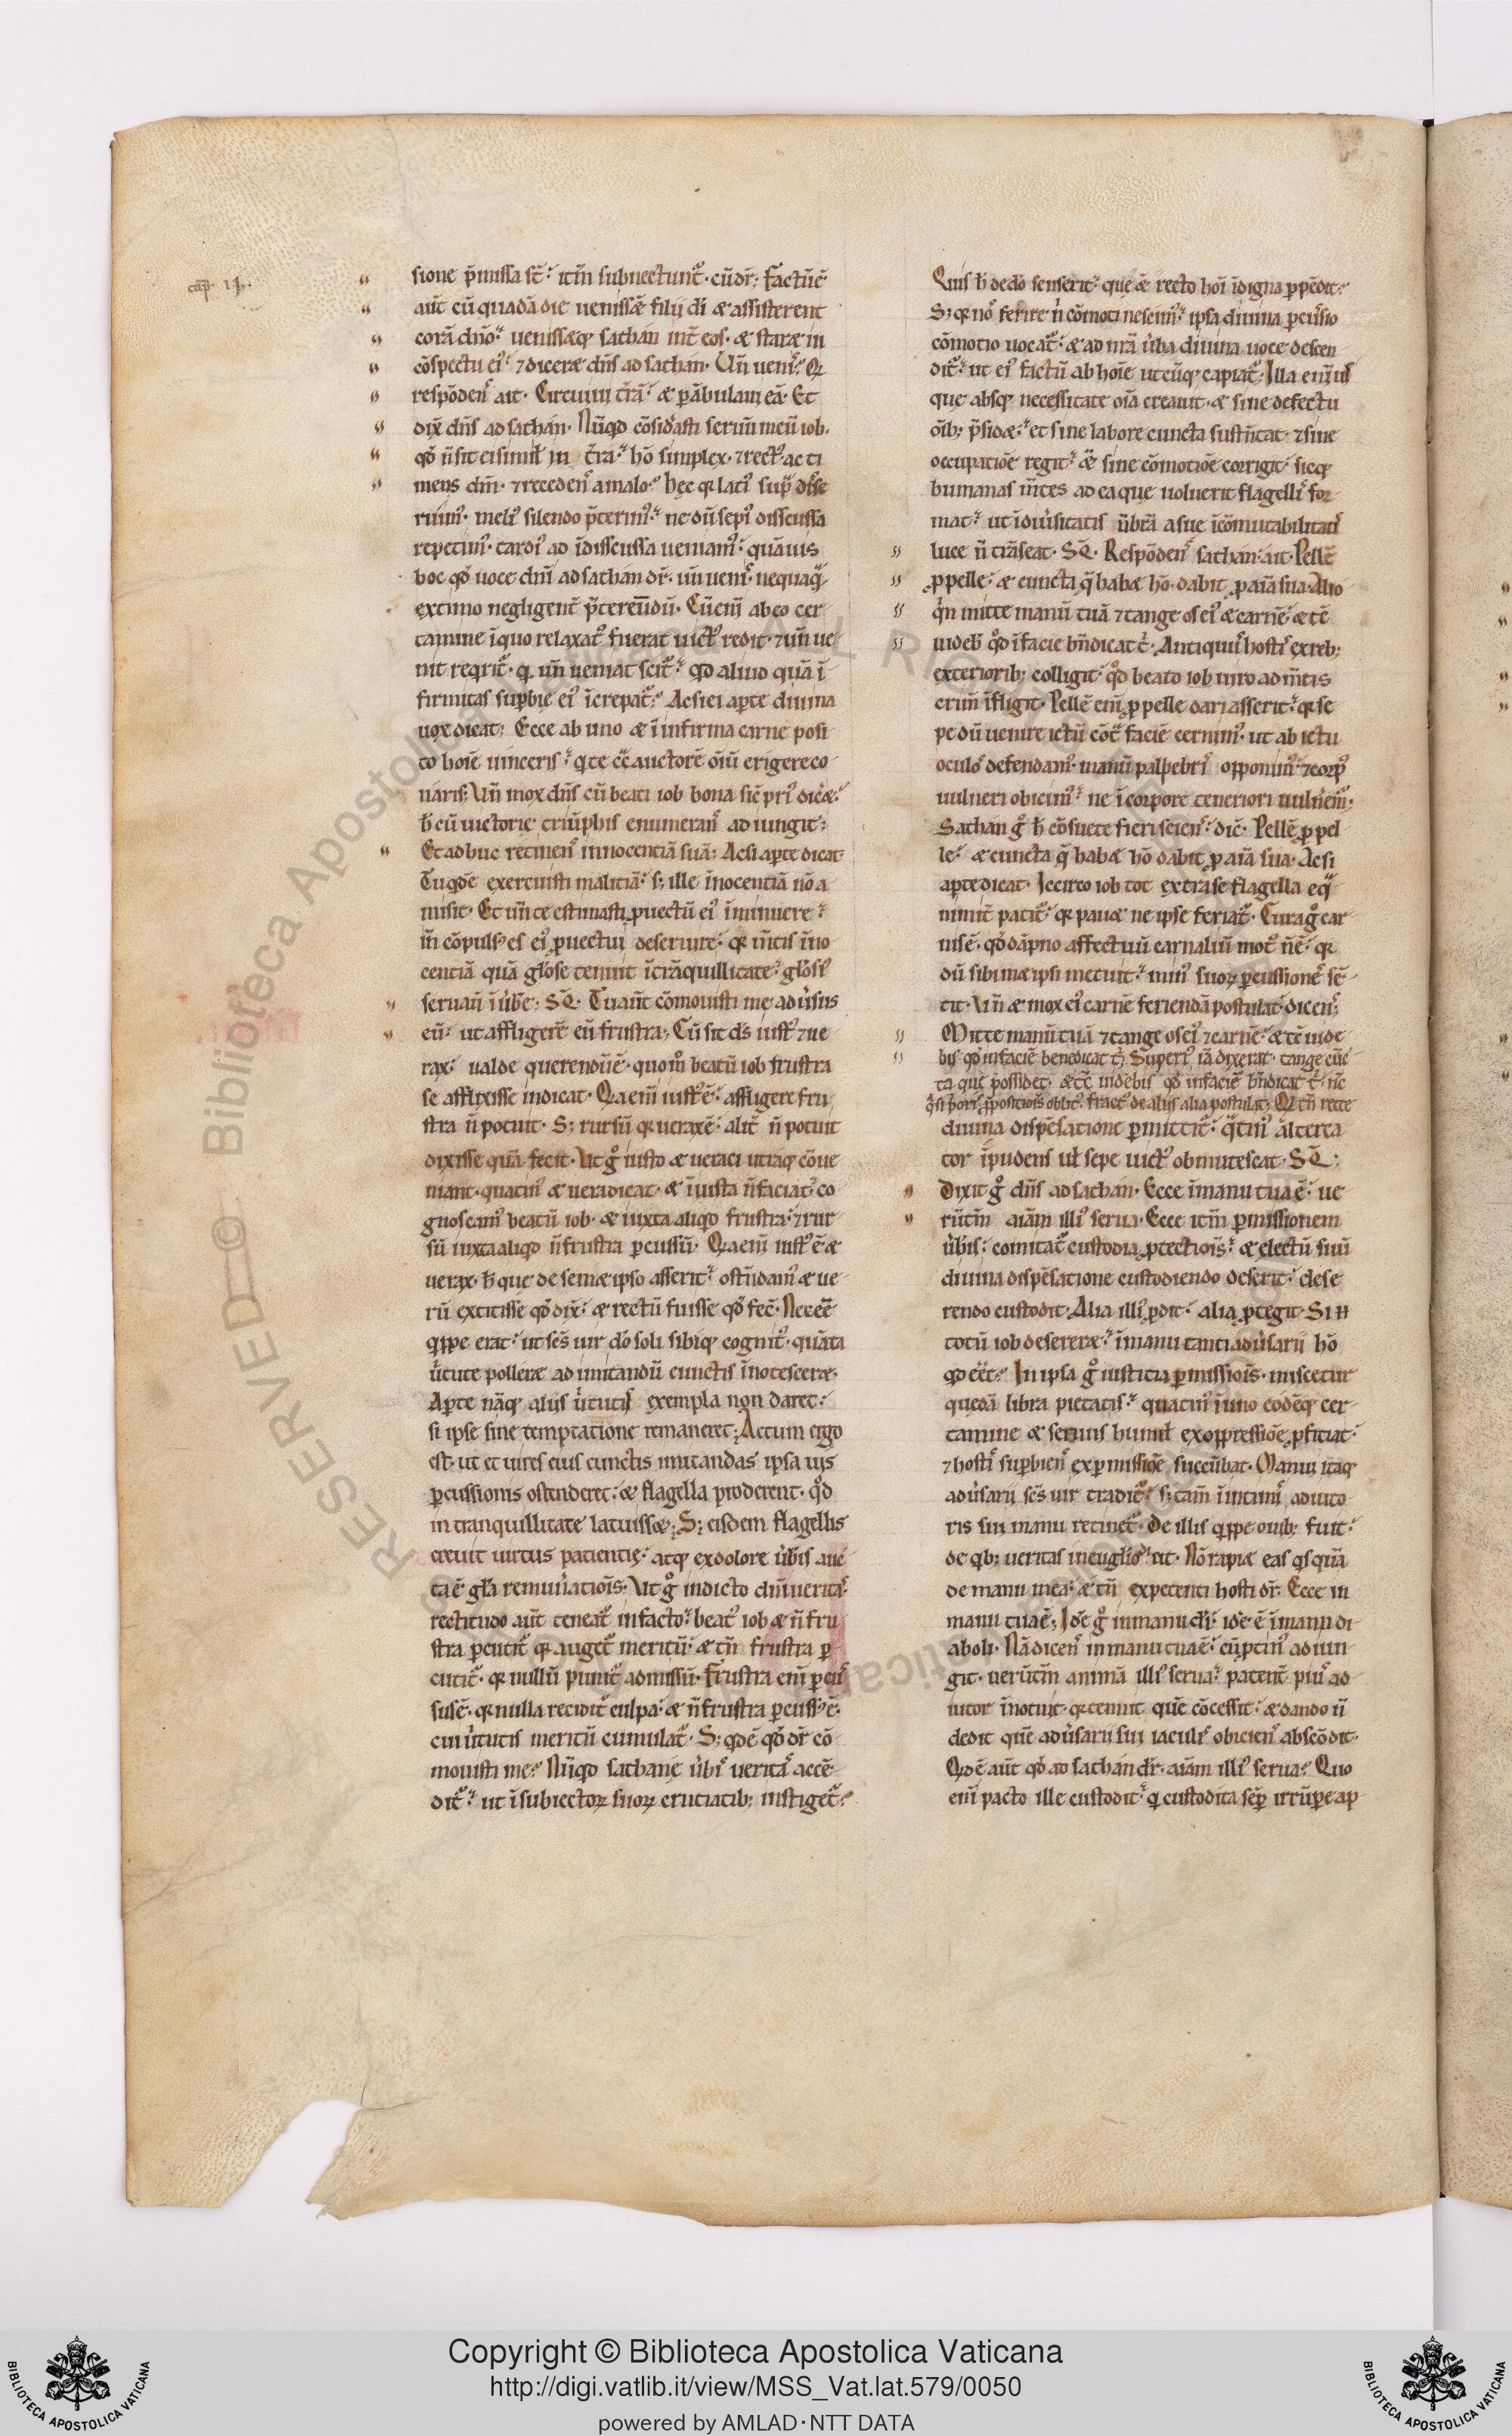 cap. II.
sione p̄missa st̄. itm̄ subnectunt᷑. cū dr̄. Factū ē
aut̄ cū quadā die uenissēt filii di ⁊ assisterent
corā dn̄o. uenissetq; sathan int̄ eos. ⁊ staret in
cōspectu ei᷒. ⁊ diceret dn̄s ad sathan. Vn̄ uenis. Qui
respōdens ait. Circuiui t̄rā. ⁊ p̲ābulaui eā. Et
dix̄ dn̄s ad sathan. Nūqd cōsid̓asti seruū meū iob.
qd̓ n̄ sit ei simil̓ in t̄ra. hō simplex. ⁊ rect᷒. ac ti
mens dm̄. ⁊ recedens a malo. hec q̓ lati᷒ sup̲ disse
ruim᷒. meli᷒ silendo p̄term᷒. ne dū sepi᷒ discussa
repetim᷒. tardi᷒ ad īdiscussa ueniam᷒. quāuis
hoc qd̓ uoce dn̄i ad sathan dr̄. un̄ uenis. nequaq̄
extimo negligent̄ p̄tereūdū. Cū eni ab eo cer
tamine īquo relaxat᷒ fuerat uict᷒ redit. ⁊ un̄ ue
nit reqrit᷑. q un̄ ueniat scit᷑. qd aliud quā ī
firmitas sup̲bie ei᷒ īcrepat᷑. Ac si ei ap̲te diuina
uox dicat. Ecce ab uno ⁊ ī infirma carne posi
to hoīe uinceris. q te cōt̄ auctorē oīū erigere co
naris. Vn̄ mox dn̄s cū beati iob bona sic̄ pri᷒ dic̄et.
h̄ cū uictorie triūphis enumerans adiungit.
Et adhuc retinens innocentiā suā. Ac si ap̲te dicat.
Tu qdē exercuisti malitiā. s; ille īnocentiā nō a
misit. Et un̄ te estimasti ꝓuectū ei᷒ īminuere.
in̄ cōpuls᷒ es ei᷒ ꝓuectui deseruire. q̓ mtis īno
centiā quā gl̓ose tenuit ī trāquillitate. gl̓osi᷒
seruauit ī ūbe. Sꝗ. Tu aut̄ cōmouisti me adūsus
eū. ut affligerē eū frustra. Cū sit ds̄ iust᷒ ⁊ ue
rax. ualde querendū ē. quom̊ beatū iob frustra
se afflixisse indicat. Q̓a eni iust᷒ ē. affligere fru
stra n̄ potuit. S; rursū q̓ uerax ē. alit̄ n̄ potuit
dixisse quā fecit. Vt g̊ iusto ⁊ ueraci utraq; cōue
niant. quatin᷒ ⁊ uera dicat. ⁊ īiusta n̄ faciat. co
gnoscam᷒ beatū iob. ⁊ iuxta aliqd frustra. ⁊ rur
sū iuxta aliqd n̄ frustra p̲cussū. Q̓a eni iust᷒ ē ⁊
uerax. h̄ que de semet ipso asserit. ostēdam᷒ ⁊ ue
rū extitisse qd̓ dix̄. ⁊ rectū fuisse qd̓ fec̄. Necēē
qppe erat. ut scs̄ uir do soli sibiq; cognit᷒. quāta
ūtute polleret ad imitandū cunctis īnotesceret.
Ap̲te nāq; aliis ūtutis exempla non daret.
si ipse sine temptatione remaneret. Actum ergo
est. ut et uires eius cunctis imitandas ipsa uis
p̲cussionis ostenderet. ⁊ flagella proderent. qd̓
in tranquillitate latuisset. S; eisdem flagellis
creuit uirtus patientie. atq; ex dolore ūb̓is auc
ta ē gl̓a remun̓atiois. Vt g̊ in dicto dn̄i ueritas.
rectitudo aut̄ teneat᷑ in facto. beat᷒ iob ⁊ n̄ fru
stra p̲cutit᷑. q̓ auget᷑ meritū. ⁊ tn̄ frustra p̲
cutit᷑. q̓ nullū punit᷑ admissū. Frustra eni p̲cus
sus ē. q̓ nulla recidit᷑ culpa. ⁊ n̄ frustra p̲cuss᷒ ē.
cui ūtutis meritū cumulat᷑. S; qd ē qd̓ dr̄ cō
mouisti me. Nūqd sathane ūbis ueritas accē
dit᷑. ut ī subiectoꝝ suoꝝ cruciatib; instiget᷑.
Quis h̄ de do senserit. que ⁊ recto hoī īdigna p̲pēdit.
S; q̓ nos ferire n̄ cōmoti nescim᷒. ipsa diuina p̲cussio
cōmotio uocat᷑. ⁊ ad nrā ūba diuina uoce descen
dit᷑. ut ei᷒ factū ab hoīe utcūq; capiat᷑. Illa eni uis
que absq; necessitate oīa creauit. ⁊ sine defectu
oīb; p̄sidet. et sine labore cuncta sustentat. ⁊ sine
occupatiōe regit. ⁊ sine cōmotiōe corrigit. sicq;
humanas mtes ad ea que uoluerit flagellis for
mat. ut ī diūsitatis ūbrā a sue īcōmutabilitatis
luce n̄ trāseat. Sꝗ. Respōdens sathan. ait. Pellē
ꝓ pelle. ⁊ cuncta q̄ habet hō. dabit ꝓ aīa sua. Alio
q̓n mitte manū tuā ⁊ tange os ei᷒ ⁊ carnē. ⁊ tc̄
uideb̓ qd̓ ī facie bn̄dicat t̓. Antiquus hostis ex reb;
exteriorib; colligit. qd̓ beato iob uiro ad mtis
crimen īfligit. Pellē eni ꝓ pelle dari asserit. q̓ se
pe dū uenire ictū cōt̄ faciē cernim᷒. ut ab ictu
oculos defendam᷒. manū palpebris opponim᷒. ⁊ corp᷒
uulneri obicim᷒. ne ī corpore teneriori uuln̓em᷒.
Sathan g̊ h̄ cōsuete fieri sciens. dic̄. Pellē ꝓ pel
le. ⁊ cuncta q̄ habet hō dabit ꝓ aīa sua. Ac si
ap̲te dicat. Iccirco iob tot extra se flagella eq̄
nimit̄ patit᷑. q̓ pauet ne ipse feriat᷑. Cura g̊ car
nis ē. qd̓ dāpno affectuū carnaliū mot᷒ n̄ ē. q̓
dū sibimet ipsi metuit. min᷒ suoꝝ p̲cussiones sē
tit. Vn̄ ⁊ mox ei᷒ carnē feriendā postulat. dicens.
Mitte manū tuā ⁊ tange os ei᷒ ⁊ carnē. ⁊ tc̄ uide
bis qd̓ in faciē benedicat t̓. Superi᷒ iā dixerat. tange cūc
ta que possidet. ⁊ tc̄ uidebis qd̓ in faciē bn̄dicat t̓. nc̄
q̓si prioris ꝓpositiois oblit᷒. fract᷒ de aliis alia postulat. Qd̓ tn̄ recte
diuina dispēsatione p̲mittit᷑. q̓tin᷒ alterca
tor īpudens ul̓ sepe uict᷒ obmutescat. Sꝗ.
Dixit g̊ dn̄s ad sathan. Ecce ī manu tua ē. ue
rūtm̄ aīam illi᷒ serua. Ecce itm̄ p̲missionem
ūbis. comitat᷑ custodia ꝓtectiois. ⁊ electū suū
diuina dispēsatione custodiendo deserit. dese
rendo custodit. Alia illi᷒ ꝓdit. alia ꝓtegit. Si n̄
totū iob desereret. ī manu tanti adūsarii hō
qd eēt. In ipsa g̊ iusticia p̲missiois. miscetur
quedā libra pietatis. quatin᷒ ī uno eodēq; cer
tamine ⁊ seruus humil̓ ex oppressiōe ꝓficiat.
⁊ hostis sup̲biens ex p̲missiōe succūbat. Manui itaq;
adūsarii scs̄ uir tradit᷑. s; tam̄ ī intimis adiuto
ris sui manu retinet᷑. De illis qppe ouib; fuit.
de qb; ueritas in euglio dicit. Nō rapiet eas qsquā
de manu mea. ⁊ tn̄ expetenti hosti dr̄. Ecce in
manu tua ē. Idē g̊ in manu di. idē ē ī manu di
aboli. Nā dicens in manu tua ē. cū ptin᷒ adiun
git. uerūtm̄ animā illi᷒ serua. patent̄ pius ad
iutor īnotuit. q̓ tenuit quē cōcessit. ⁊ dando n̄
dedit quē adūsarii sui iaculis obiciens abscōdit.
Qd ē aut̄ qd̓ ad sathan dr̄. aīam illi᷒ serua. Quo
eni pacto ille custodit. q custodita sēp̲ irrūpe ap